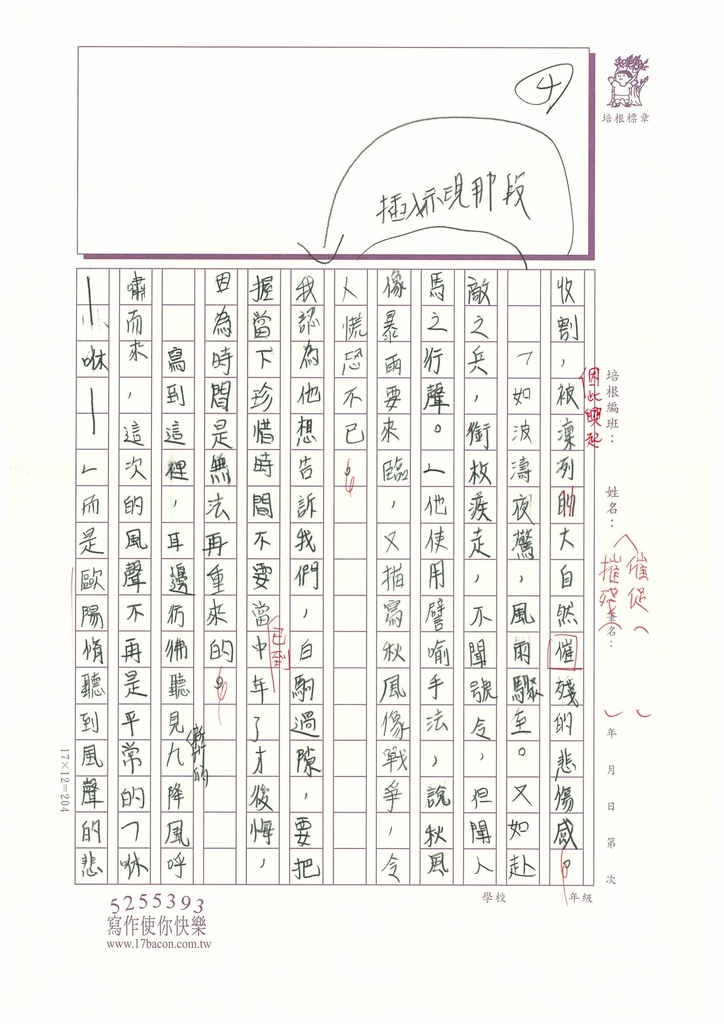 ④
插入示現那段
培根標章
收割，被凜冽的大自然催殘的悲傷感。
因此喚起
「如波濤夜驚，風雨驟至。又如赴
敵之兵，銜枚疾走，不聞號令，但聞人
馬之行聲。」他使用譬喻手法，說秋風
像暴雨要來臨，又描寫秋風像戰爭，令
人慌恐不已。
我認為他想告訴我們，白駒過隙，要把
握當下珍惜時間不要當中年了才後悔，
已到
因為時間是無法再重來的。
寫到這裡，耳邊彷彿聽見九降風呼
嘯而來，這次的風聲不再是平常的「咻
——咻——」而是歐陽脩聽到風聲的悲
培根編班：
姓名：
簽名：
年 月 日 第 次
催促
摧殘
學校
年級
17×12=204
5255393
寫作使你快樂
www.17bacon.com.tw